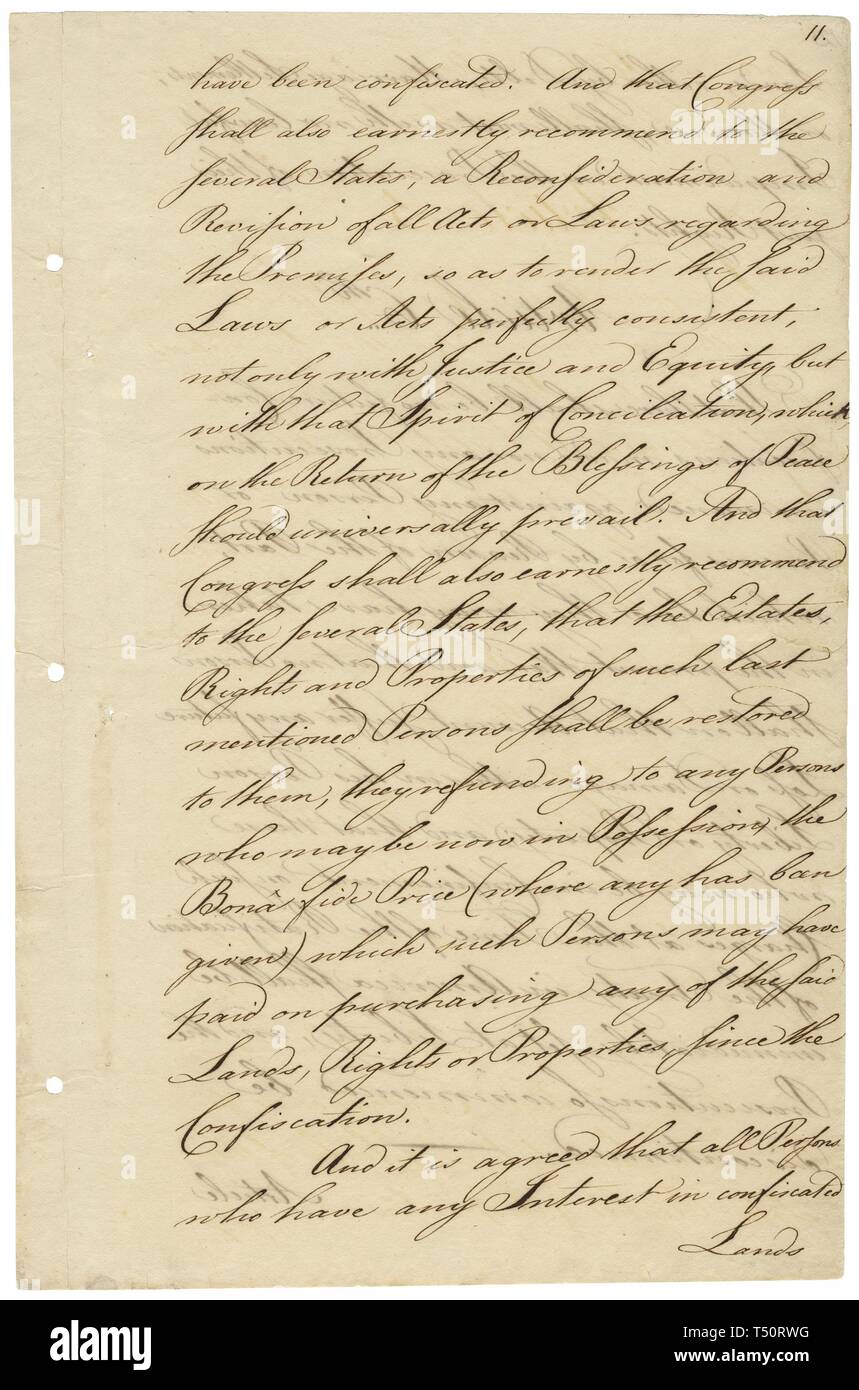 11.
have been confiscated. And that Congress
shall also earnestly recommend to the
several States, a Reconsideration and
Revision of all Acts or Laws regarding
the Premises, so as to render the said
Laws or Acts perfectly consistent,
not only with Justice and Equity, but
with that Spirit of Conciliation, which
on the Return of the Blessings of Peace
should universally prevail. And that
Congress shall also earnestly recommend
to the several States, that the Estates,
Rights and Properties of such last
mentioned Persons shall be restored
to them, they refunding to any Persons
who may be now in Possession, the
Bonâ fide Price (where any has ban
given) which such Persons may have
paid on purchasing any of the said
Lands, Rights or Properties, since the
Confiscation.
And it is agreed that all Persons
who have any Interest in confiscated
Lands
alamy
Image ID: T50RWG
www.alamy.com